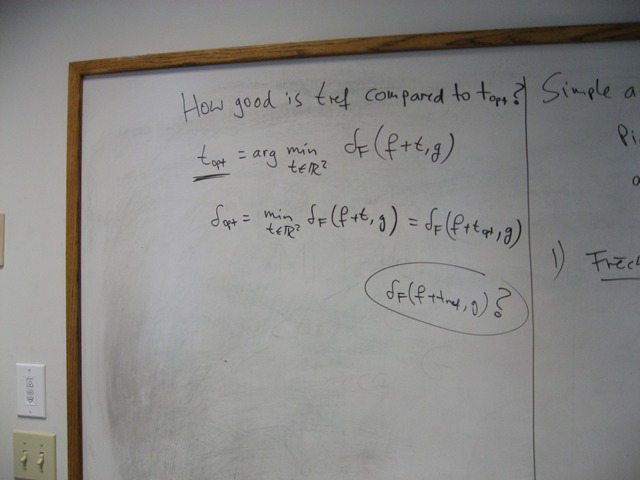 How good is tref compared to topt?
topt = arg min t∈ℝ² δF(f+t,g)
δopt = min t∈ℝ² δF(f+t,g) = δF(f+topt,g)
δF(f+tref,g)?
Simple a
Pi
a
1) Fréch